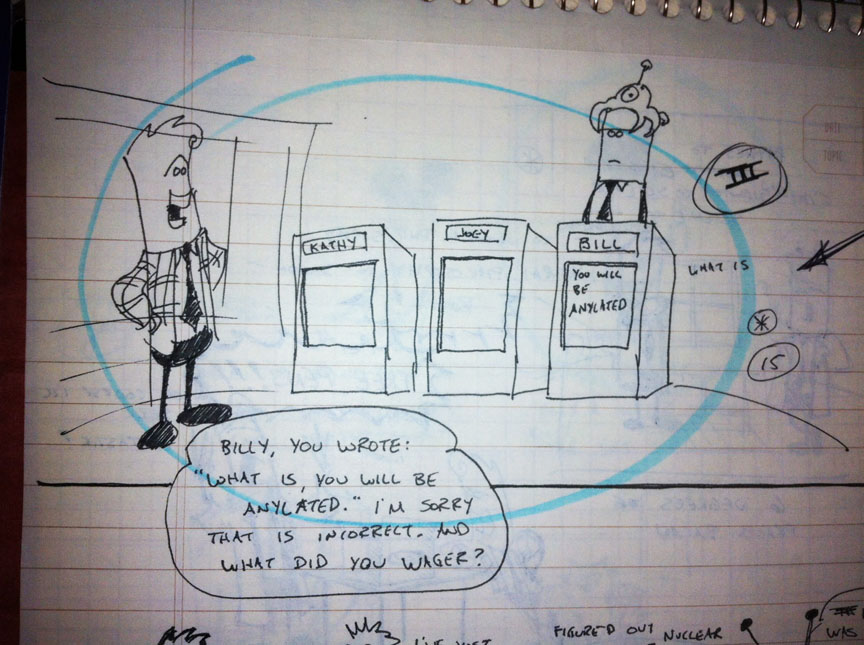 III
KATHY
JOEY
BILL
YOU WILL
BE
ANYLATED
WHAT IS
*
15
BILLY, YOU WROTE:
"WHAT IS, YOU WILL BE
ANYLATED." I'M SORRY
THAT IS INCORRECT. AND
WHAT DID YOU WAGER?
FIGURED OUT NUCLEAR
WAS
DATE
TOPIC